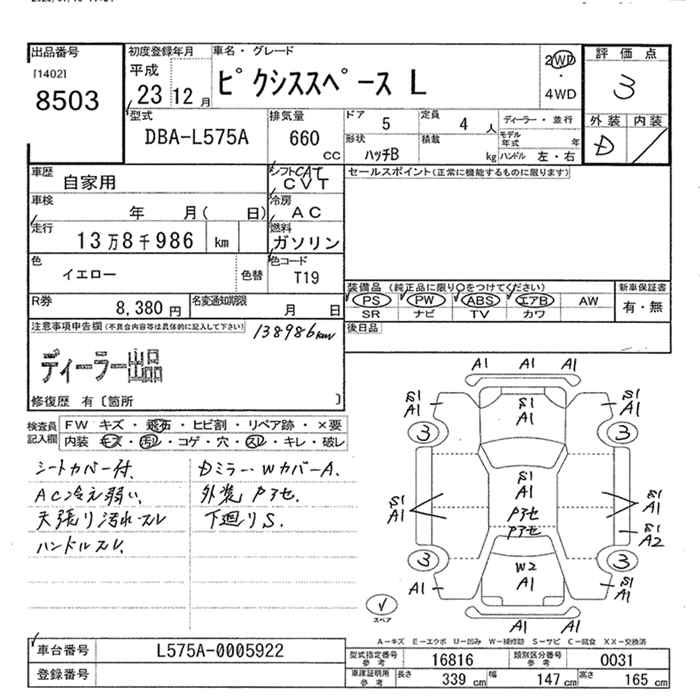 出品番号
[1402]
8503
初度登録年月
平成
23 12 月
車名・グレード
ピクシススペース L
2WD
・
4WD
評 価 点
3
外 装 内 装
D
型式
DBA-L575A
排気量
660 CC
ドア 5
定員 4 人
形状 ハッチB
積載 kg
ディーラー・並行
モデル年式 年
ハンドル 左・右
車歴 自家用
シフト CAT
CVT
車検 年 月( 日)
冷房 AC
走行 13万8千986 km
燃料 ガソリン
色 イエロー 色替
色コード T19
R券 8,380 円
名変通知期限 月 日
セールスポイント(正常に機能するものに限ります)
装備品 (純正品に限り○をつけてください)
PS PW ABS エアB AW
SR ナビ TV カワ
新車保証書
有・無
後日品
注意事項申告欄(不具合内容等は具体的に記入して下さい)
138986km
ディーラー出品
修復歴 有〔箇所 〕
検査員記入欄
FW キズ・飛石・ヒビ割・リペア跡・×要
内装 キズ・汚レ・コゲ・穴・スレ・キレ・破レ
シートカバー付.
AC冷え弱い.
天張り汚れスレ
ハンドルスレ.
Dミラー・WカバーA.
外装 Pアセ.
下廻りS.
A1 A1 A1
S1 A1
S1 A1
S1 A1
3 3
S1 A1
S1 A1
S1 A1
Pアセ
Pアセ
S1 A2
3 3
W2 A1
A1
S1 A1
A1 A1 A1
スペア
A－キズ E－エクボ U－凹み W－補修跡 S－サビ C－腐食 XX－交換済
車台番号 L575A-0005922
登録番号
型式指定番号 参考 16816
類別区分番号 参考 0031
車庫証明用 参考
長さ 339 cm
幅 147 cm
高さ 165 cm